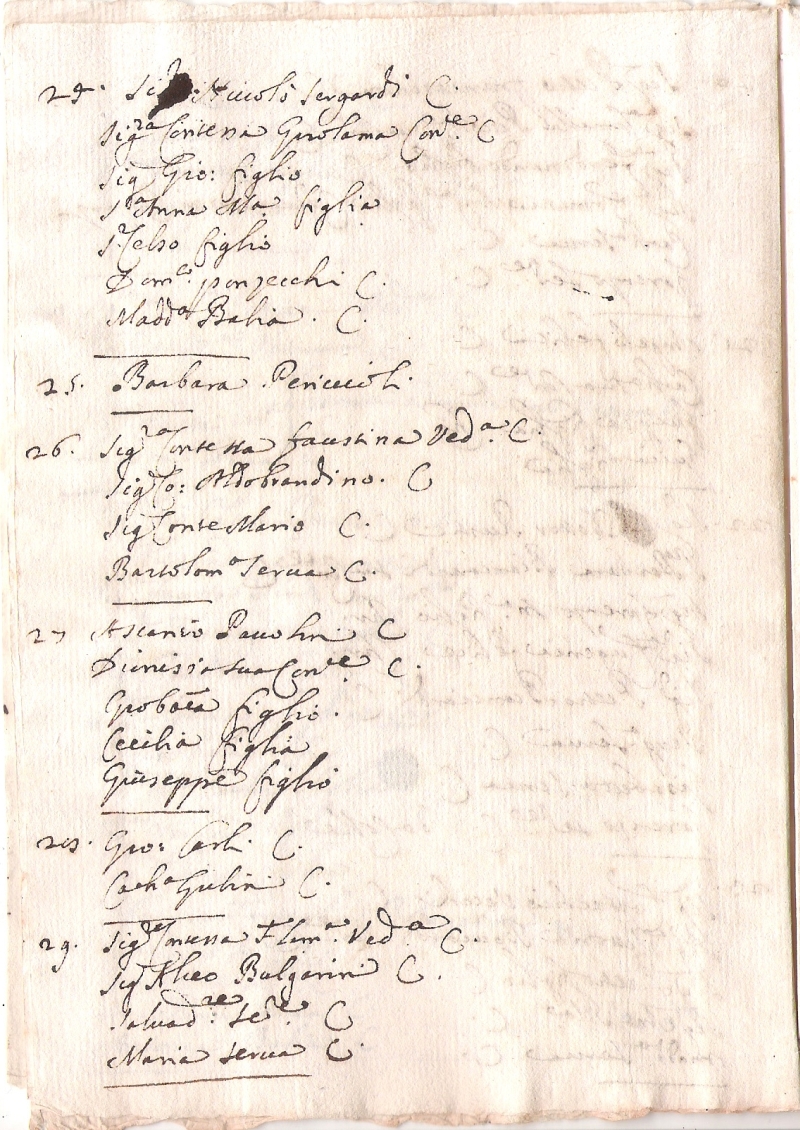 24. Sig.r Niccolò Sergardi C.
Sig.ra Contessa Girolama Con.te C
Sig Gio: figlio
S.ra Anna M.a figlia
S. Celso figlio
Dom.co ponzecchi C.
Madd.a Balia. C.
25. Barbara Periccioli.
26. Sig.ra Contessa faustina Ved.a C.
Sig Co: Aldobrandino. C
Sig Conte Mario C.
Bartolom.a Serva C.
27 Ascanio Pavolini C
Dionisia sua Con.te C.
Giobatta figlio.
Cecilia figlia
Giuseppe figlio
28. Gio: Carli C.
C
29. Sig.ra Contessa Flam.a Ved.a C.
Sig Alceo Bulgarini C.
Salvad.re Se.re C
Maria serva C.